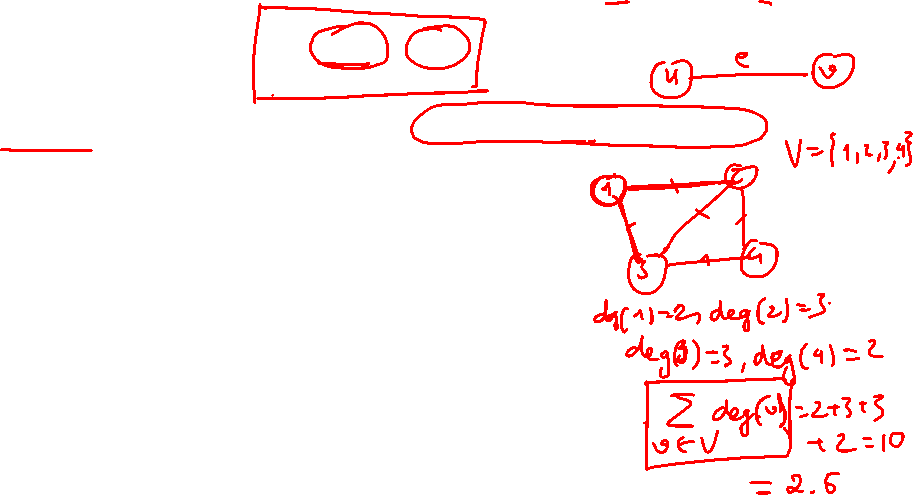 e
u v
V = {1,2,3,4}
1 2
3 4
deg(1)=2, deg(2)=3
deg(3)=3, deg(4)=2
∑ deg(v) = 2+3+3
v∈V +2=10
= 2.5